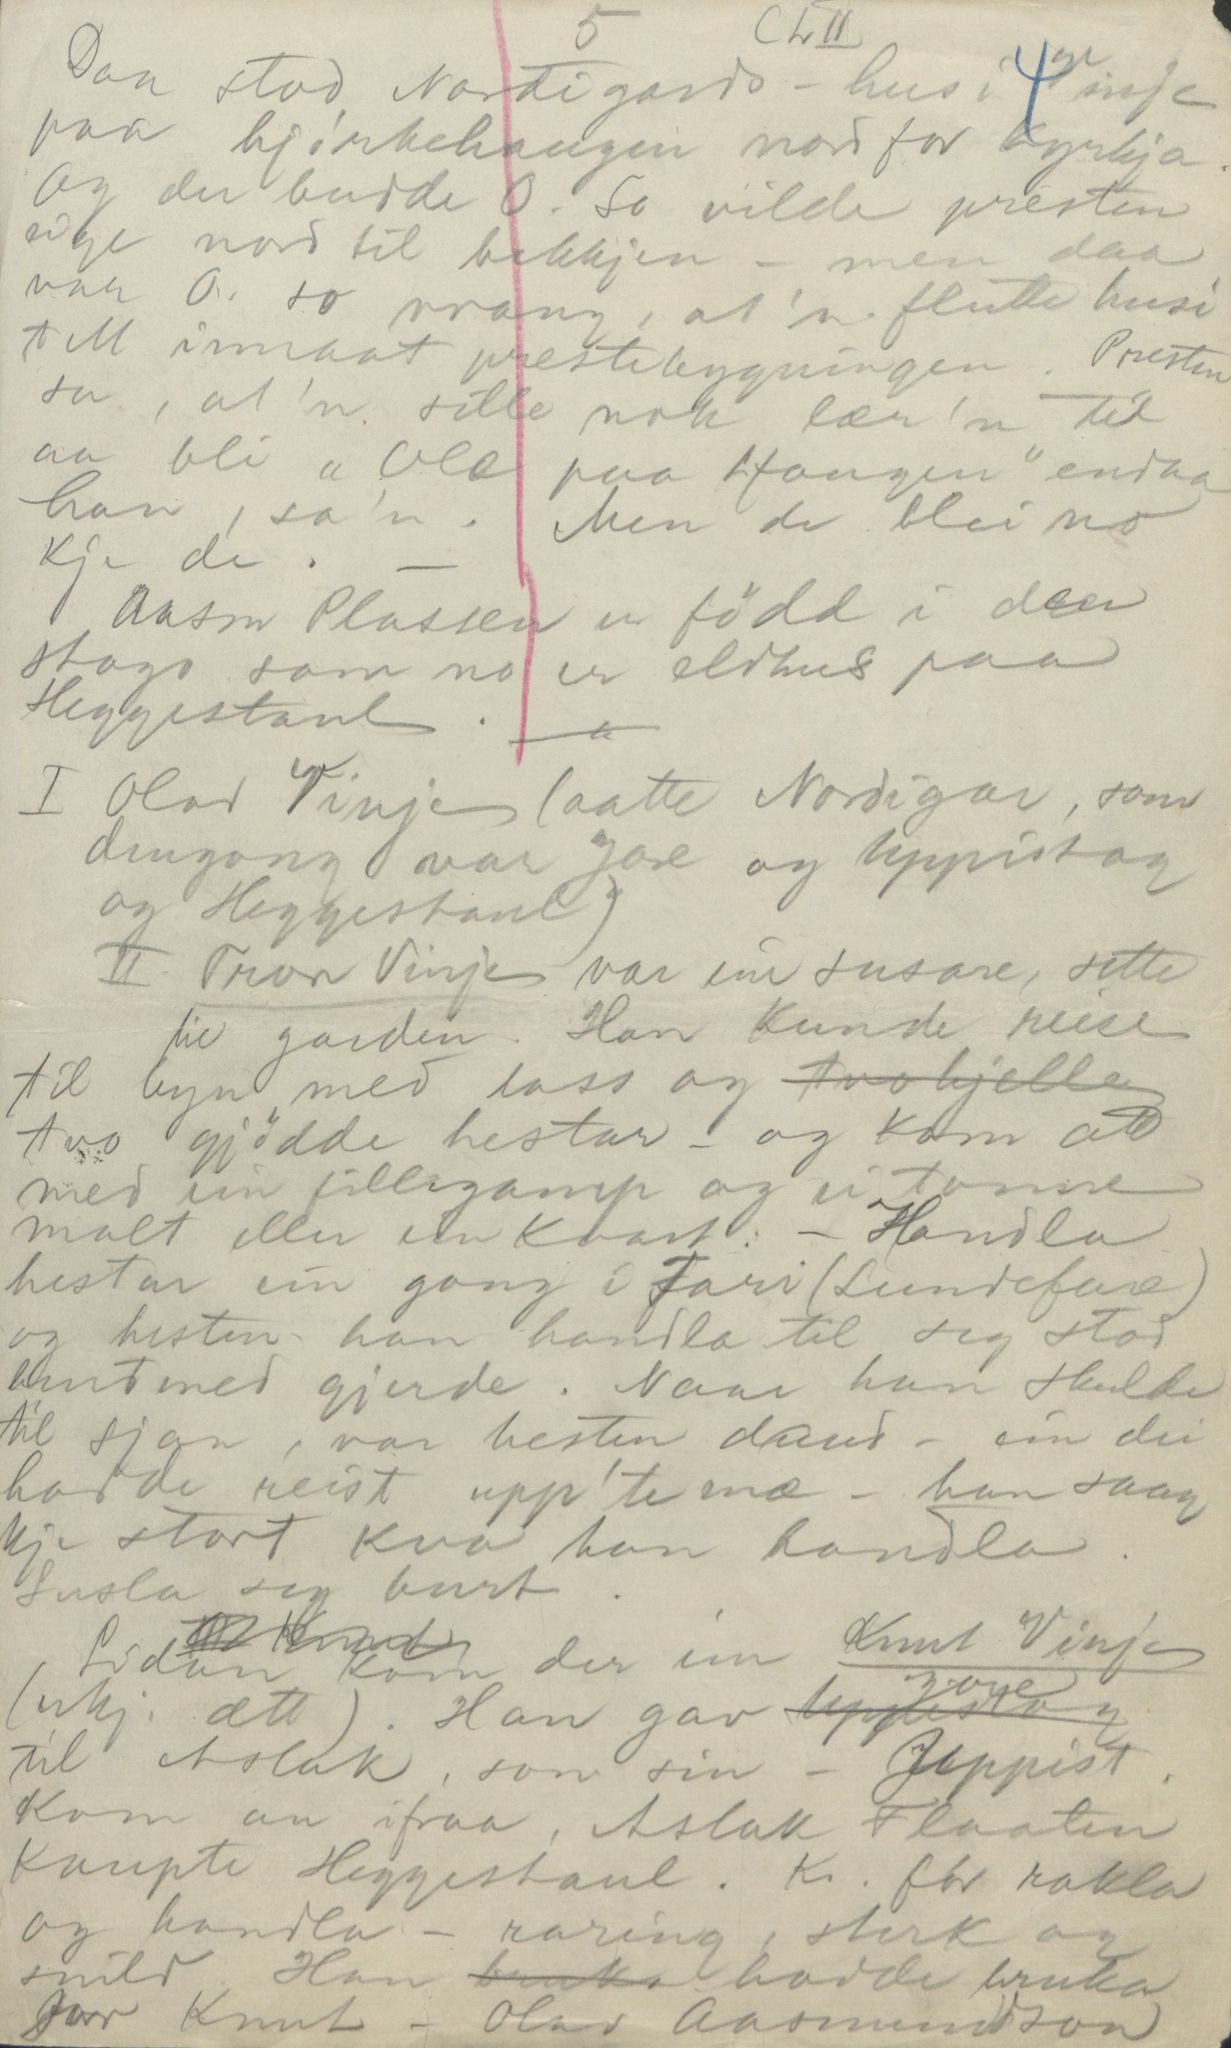 5 Ch II
4
Daa stod Nordigards-husi Vinje
paa bjørkehaugen nordfor kyrkja.
Og der budde O. So vilde presten
eige nord til bekkjen – men daa
var O. so vrang, at'n flutte husi
till innaat prestebygningen. Presten
sa, at'n sille nok lær'n til
aa bli "Ole paa Haugen" endaa
han, sa'n. Men de blei no
kje de. –
Aasm Plassen er född i den
stogo som no er eldhus paa
Heggestaul.
I Olav Vinje (aatte Nordigar, som
dengong var Jore og Uppistog
og Heggestaul)
II Tror Vinje var ein susare, sette
te garden. Han kunde reise
til byn med lass og tvo kjelle
tvo gjödde hestar – og kom att
med ein fillegamp og ei tonne
malt eller ein kvart. – Handla
hestar ein gong i Fari (Lundefare)
og hesten han handla til seg stod
burtmed gjerde. Naar han skulde
til sjaa, var hesten daud – ein dei
hadde reist upp'te mæ – han saag
kje stort kva han handla.
Susla seg burt.
Sidan kom der ein Knut Vinje
(ukj. ætt). Han gav Uppistog Jore
til Aslak, son sin – Uppist.
kom an ifraa, Aslak Flaaten
kaupte Heggestaul. K. for rakla
og handla – raring, sterk og
snild. Han bruka hadde bruka
Jor Knut – Olav Aasmundson